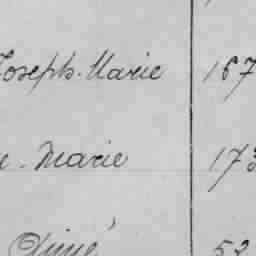 Joseph-Marie 167
e-Marie 173
Aimé 52